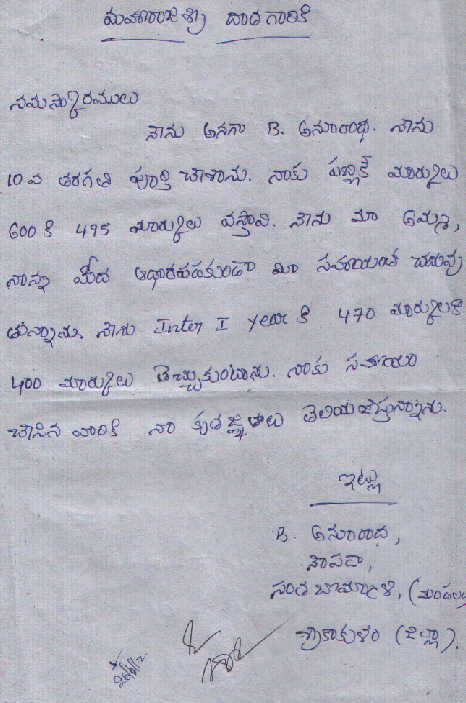 మహారాజశ్రీ దాదగారికి
నమస్కారములు
నేను అనగా B. అనూరాధ. నేను
10 వ తరగతి పూర్తి చేశాను. నాకు పబ్లిక్ మార్కులు
600 కి 495 మార్కులు వస్తావి. నేను మా అమ్మ,
నాన్న మీద ఆధారపడకుండా మీ సహాయంతో చదువు
తున్నాను. నేను Inter I year కి 470 మార్కులకి
400 మార్కులు తెచ్చుకుంటాను. నాకు సహాయం
చేసిన వారికి నా కృతజ్ఞతలు తెలియజేస్తున్నాను.
ఇట్లు
B. అనూరాధ,
సంత బొమ్మాళి, (మండలం)
శ్రీకాకుళం (జిల్లా).